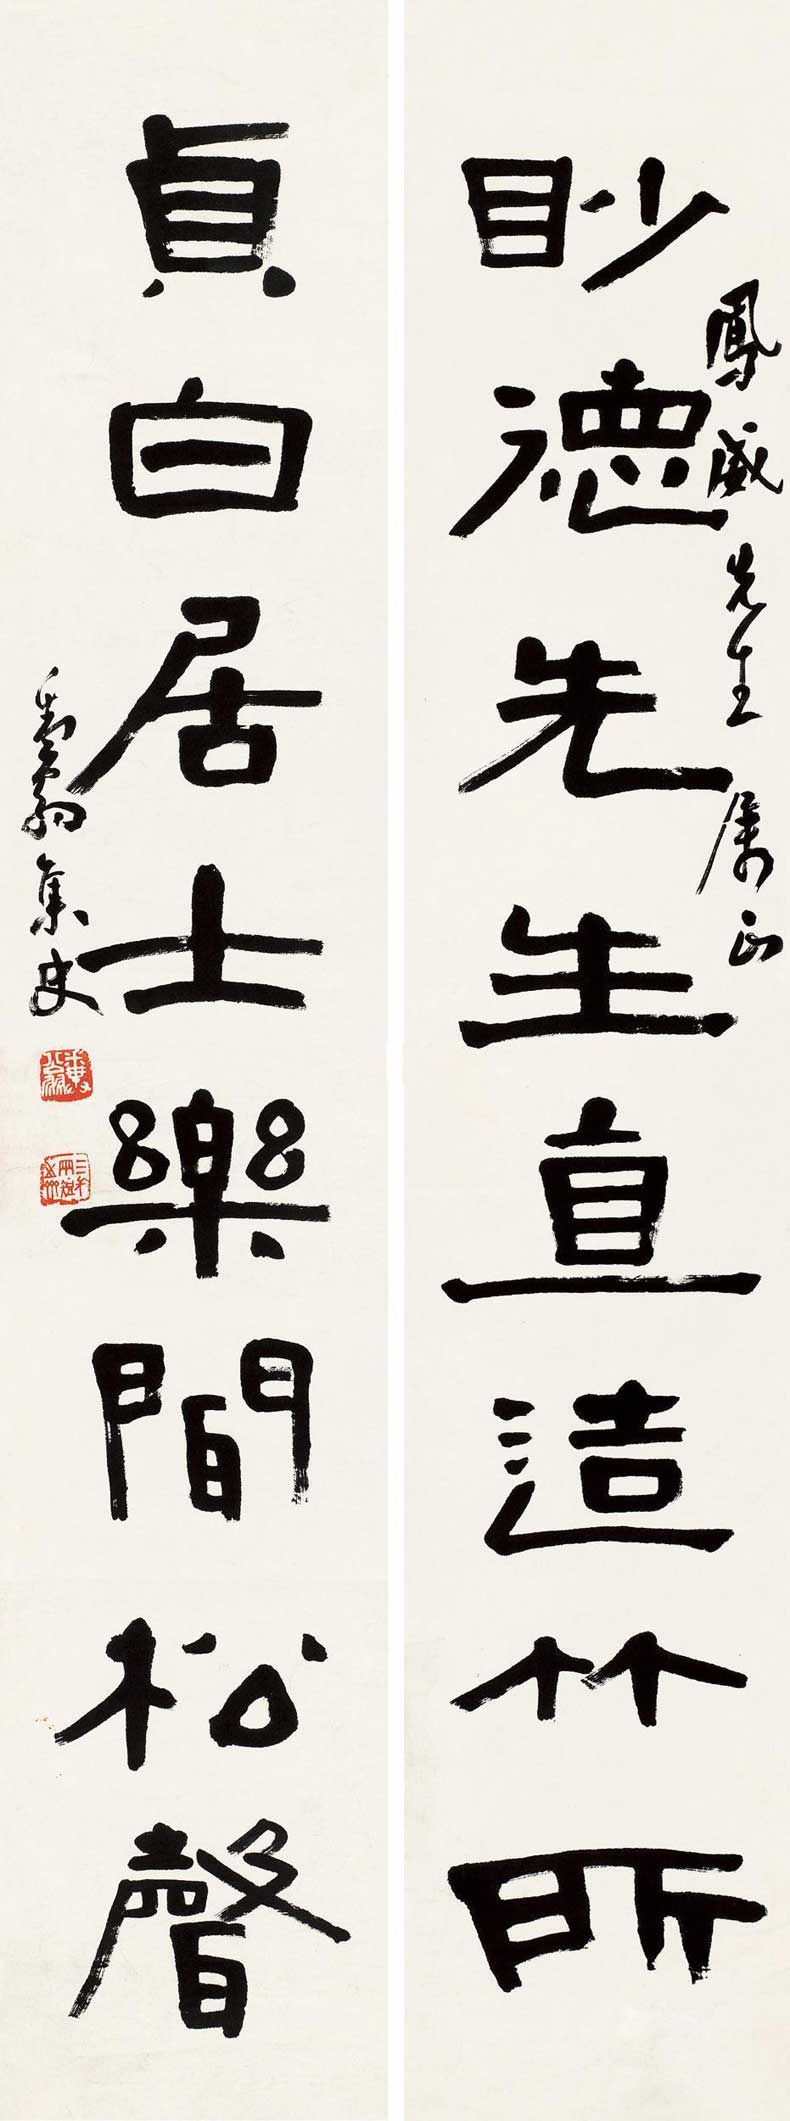 眇德先生直造竹所
鳳威先生属正
貞白居士樂聞松聲
集史